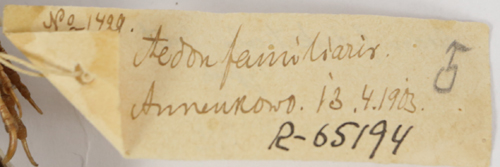 No 1420.
Aedon familiaris.
Annenkowo. 13.4.1903.
R-65194